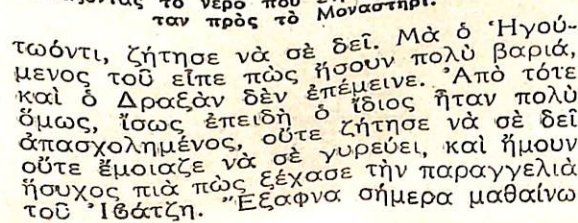 τας τὸ νερὸ ποὺ
ταν πρὸς τὸ Μοναστήρι.
τωόντι, ζήτησε νὰ σὲ δεῖ. Μὰ ὁ Ἡγού-
μενος τοῦ εἶπε πὼς ἤσουν πολὺ βαριά,
καὶ ὁ Δραξὰν δὲν ἐπέμεινε. Ἀπὸ τότε
ὅμως, ἴσως ἐπειδὴ ὁ ἴδιος ἦταν πολὺ
ἀπασχολημένος, οὔτε ζήτησε νὰ σὲ δεῖ
οὔτε ἔμοιαζε νὰ σὲ γυρεύει, καὶ ἤμουν
ἥσυχος πιὰ πὼς ξέχασε τὴν παραγγελιὰ
τοῦ Ἰβάτζη. Ἔξαφνα σήμερα μαθαίνω